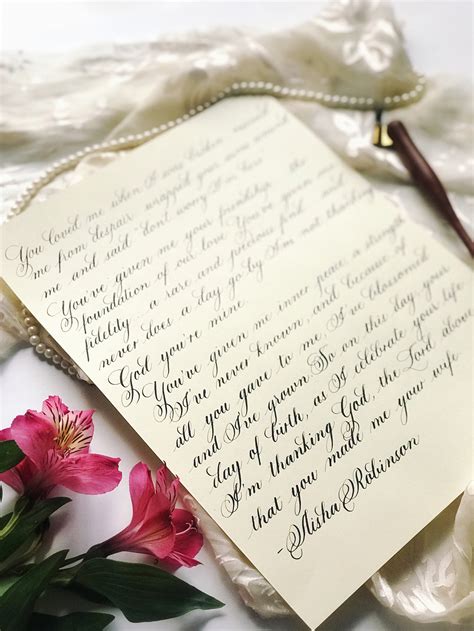 You loved me when I was broken, rescued
me from despair, wrapped your arms around
me and said "don't worry I'm here
You've given me your friendship, the
foundation of our love. You've given me
fidelity - a rare and precious find and
never does a day go by I'm not thanking
God you're mine.
You've given me inner peace, a strength
I've never known, and because of
all you gave to me I've blossomed
and I've grown. So on this day, your
day of birth, as I celebrate your life
I'm thanking God, the Lord above
that you made me your wife
-Aisha Robinson